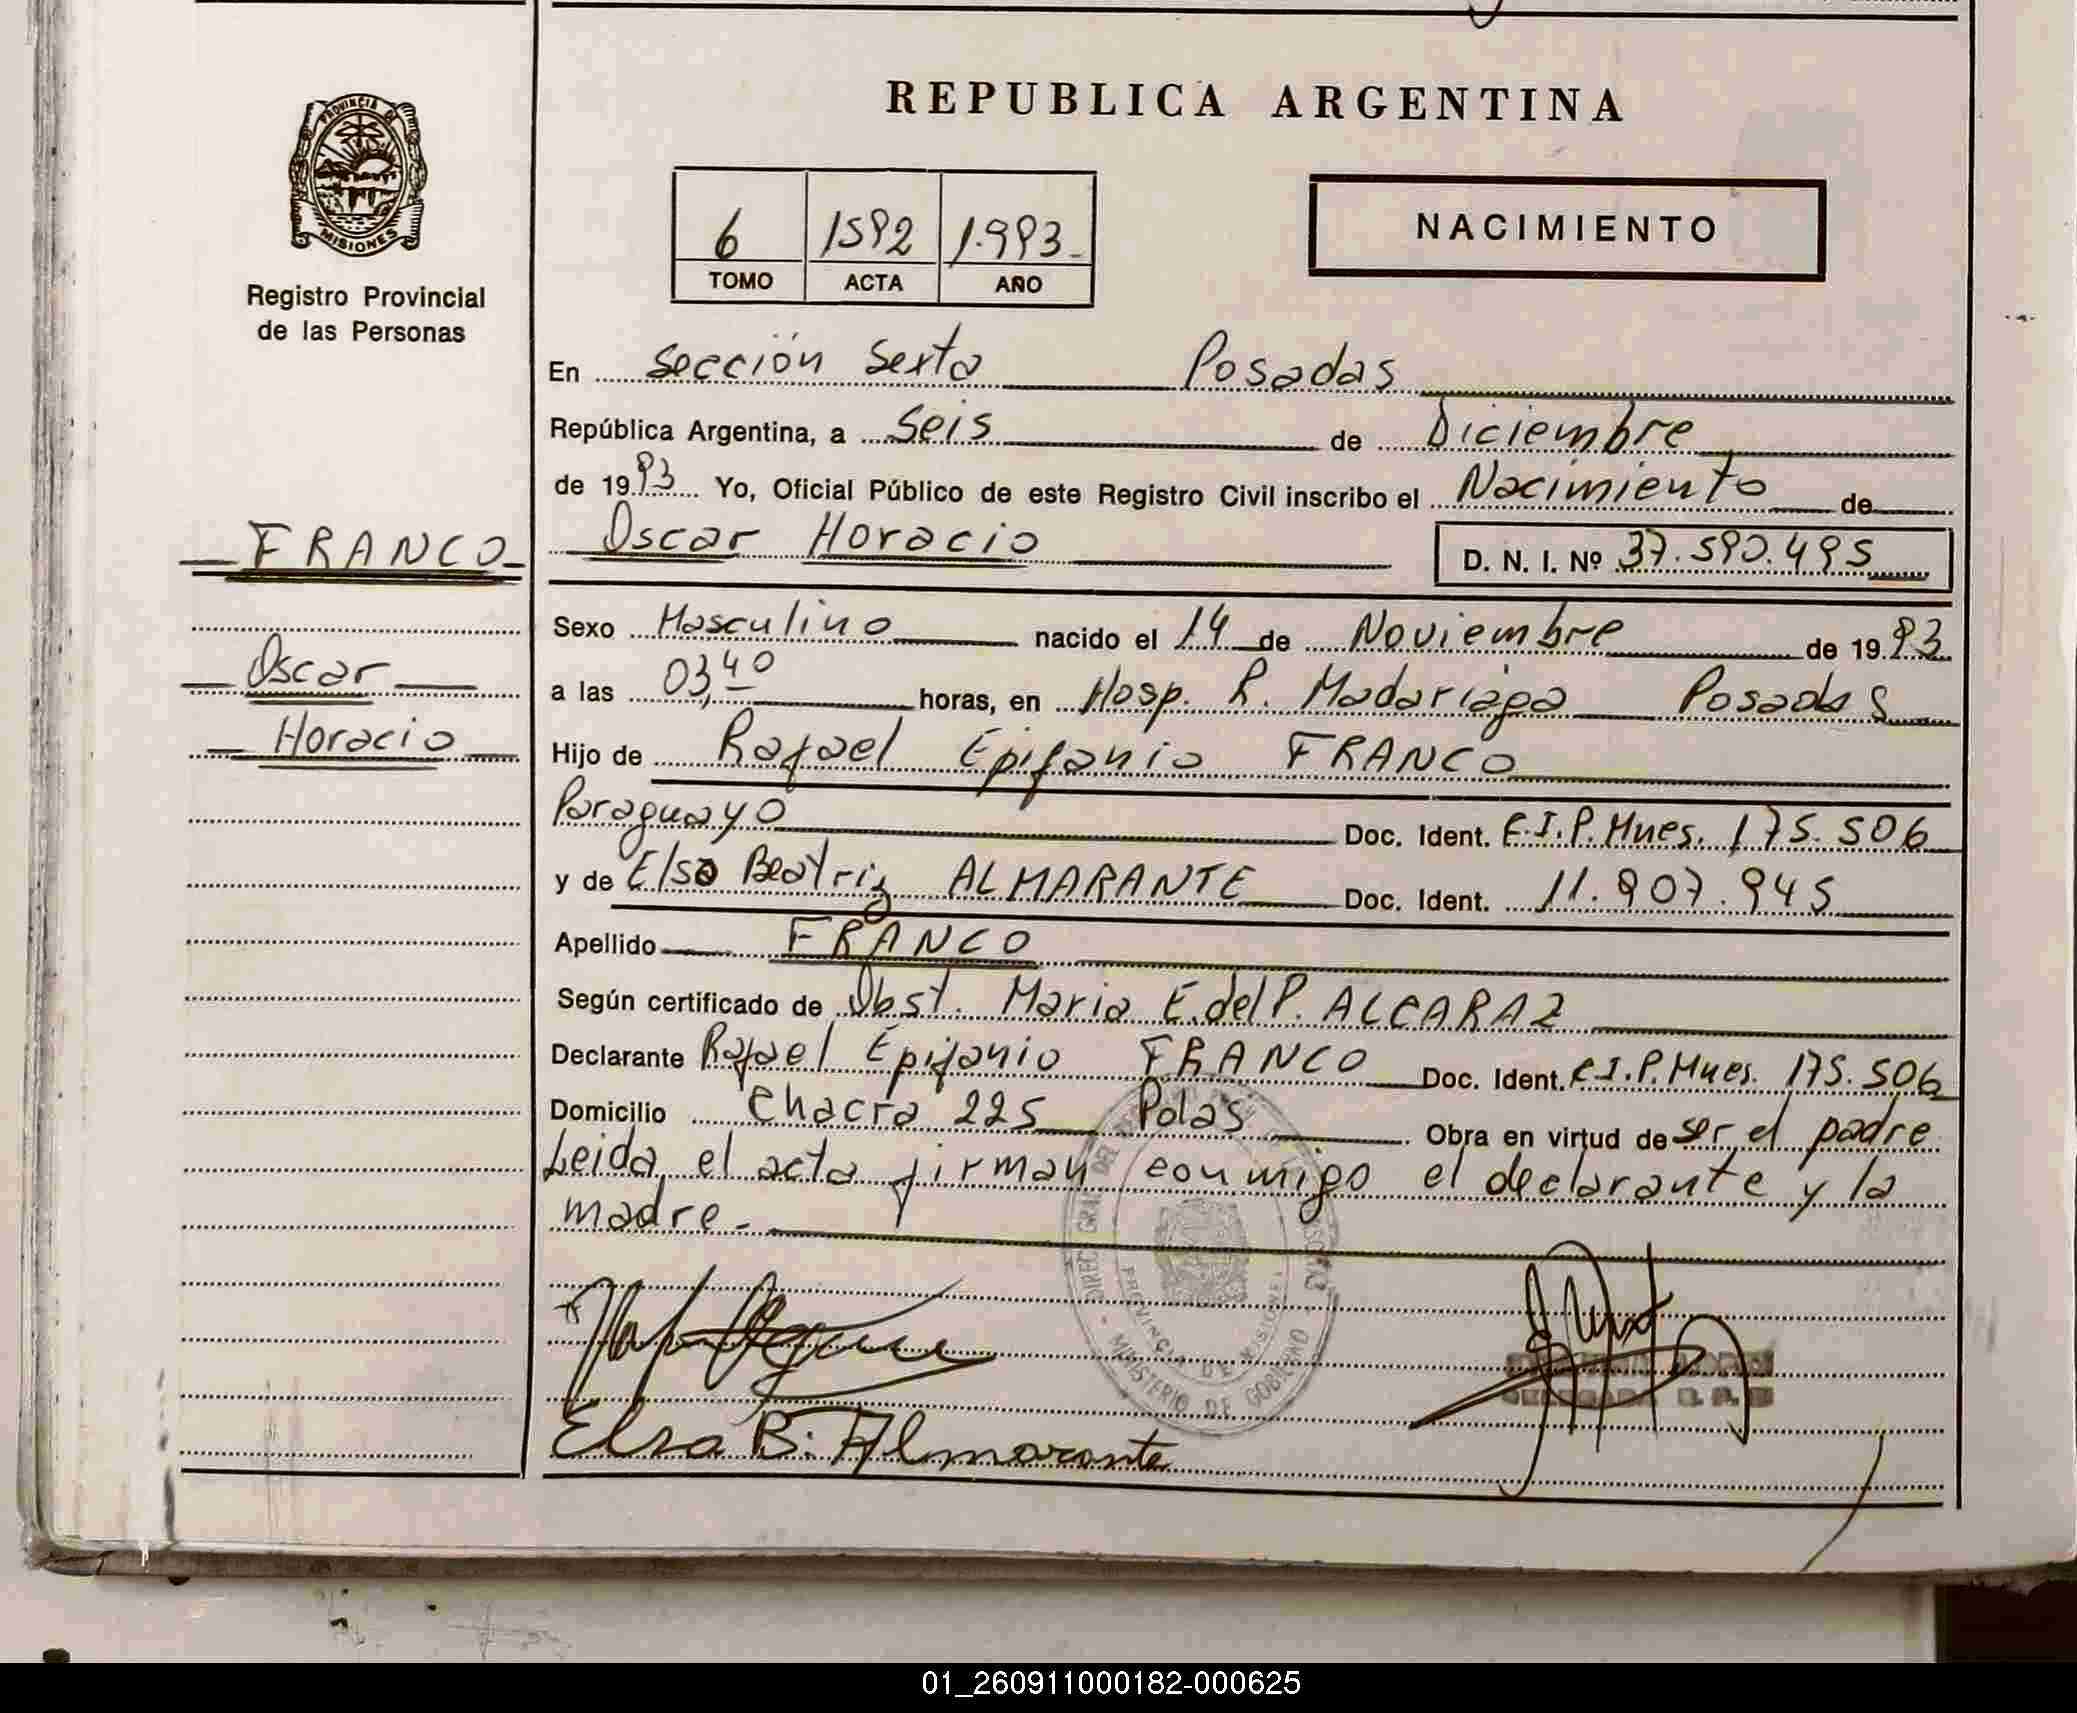 REPUBLICA ARGENTINA
PROVINCIA DE
MISIONES
Registro Provincial
de las Personas
6 1592 1.993-
TOMO ACTA AÑO
NACIMIENTO
En Sección Sexta Posadas
República Argentina, a Seis de Diciembre
de 1993 Yo, Oficial Público de este Registro Civil inscribo el Nacimiento de
FRANCO
Oscar Horacio D. N. I. Nº 37.590.495
Sexo Masculino nacido el 14 de Noviembre de 1993
Oscar
a las 03,40 horas, en Hosp. R. Madariaga Posadas
Horacio
Hijo de Rafael Epifanio FRANCO
Paraguayo Doc. Ident. C.I.P.Mnes. 175.506
y de Elsa Beatriz ALMARANTE Doc. Ident. 11.907.945
Apellido FRANCO
Según certificado de Obst. Maria E. del P. ALCARAZ
Declarante Rafael Epifanio FRANCO Doc. Ident. C.I.P.Mnes. 175.506
Domicilio Chacra 225 Pdas Obra en virtud de ser el padre
Leida el acta firman conmigo el declarante y la
madre.-
DIREC. GRAL. DEL
PROVINCIA DE MISIONES
MINISTERIO DE GOBIERNO
Elsa B. Almarante
01_260911000182-000625